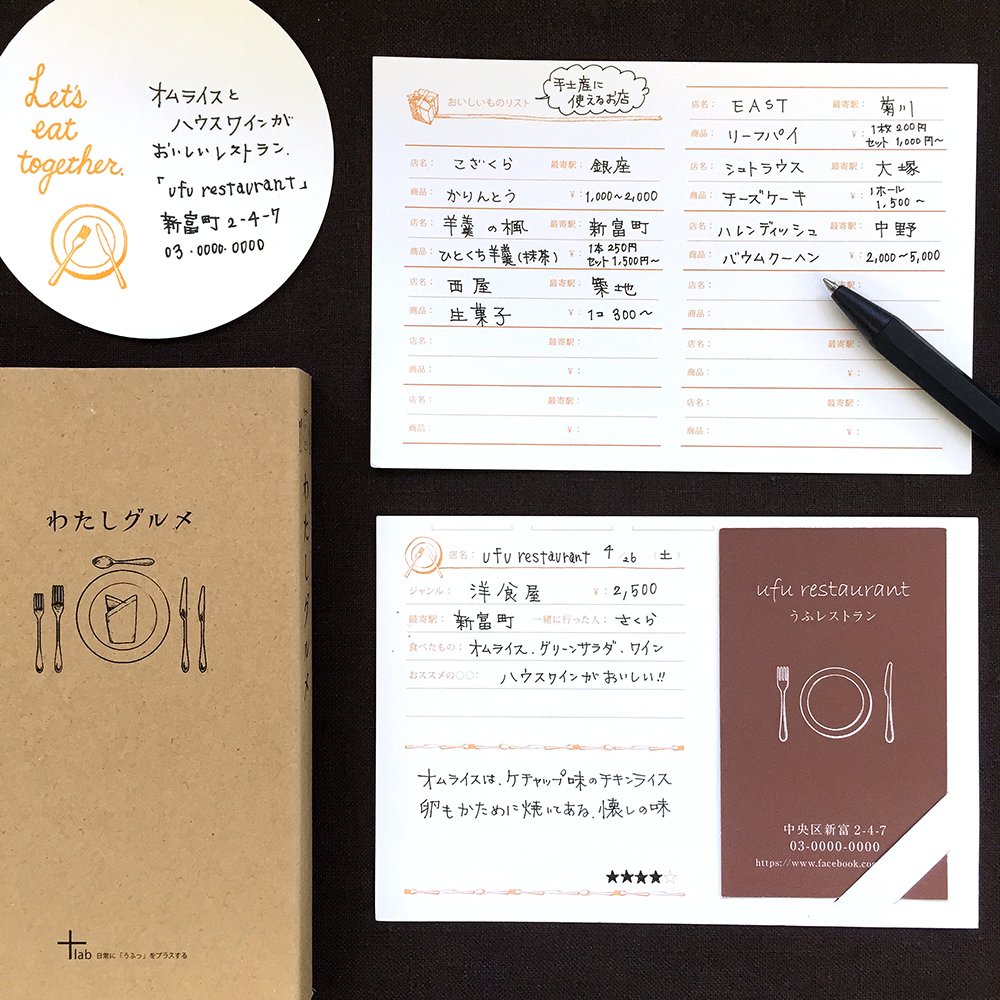 Let's
eat
together.
オムライスと
ハウスワインが
おいしいレストラン.
「ufu restaurant」
新富町 2-4-7
03-0000-0000
おいしいものリスト
手土産に
使えるお店
店名： こざくら 最寄駅： 銀座
商品： かりんとう ¥： 1,000〜2,000
店名： 羊羹の楓 最寄駅： 新富町
商品： ひとくち羊羹(抹茶) ¥： 1本 250円
セット 1,500円〜
店名： 西屋 最寄駅： 築地
商品： 生菓子 ¥： 1コ 300〜
店名： 最寄駅：
商品： ¥：
店名： 最寄駅：
商品： ¥：
店名： EAST 最寄駅： 菊川
商品： リーフパイ ¥： 1枚 200円
セット 1,000円〜
店名： シュトラウス 最寄駅： 大塚
商品： チーズケーキ ¥： 1ホール
1,500〜
店名： ハレンディッシュ 最寄駅： 中野
商品： バウムクーヘン ¥： 2,000〜5,000
店名： 最寄駅：
商品：
店名： 最寄駅：
商品： ¥：
店名： 最寄駅：
商品： ¥：
わたしグルメ
+lab 日常に「うふっ」をプラスする
わたしグルメ
店名： ufu restaurant 4/26 （土）
ジャンル： 洋食屋 ¥： 2,500
最寄駅： 新富町 一緒に行った人： さくら
食べたもの： オムライス、グリーンサラダ、ワイン
おススメの〇〇： ハウスワインがおいしい!!
オムライスは、ケチャップ味のチキンライス
卵もかために焼いてある、懐しの味
★★★★☆
ufu restaurant
うふレストラン
中央区新富 2-4-7
03-0000-0000
https://www.facebook.com